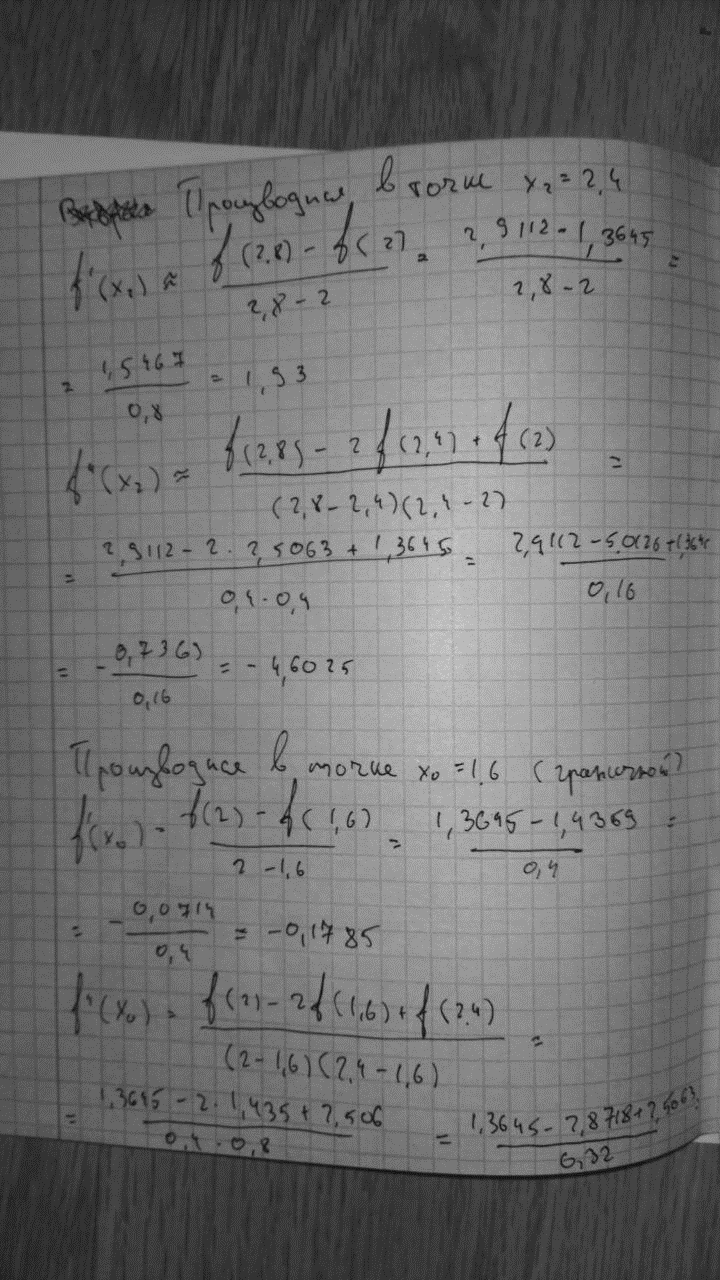 Производная в точке x₂ = 2,4
f'(x₂) ≈ (f(2,8) - f(2)) / (2,8 - 2) = (2,9112 - 1,3645) / (2,8 - 2) =
= 1,5467 / 0,8 = 1,93
f''(x₂) ≈ (f(2,8) - 2f(2,4) + f(2)) / ((2,8 - 2,4)(2,4 - 2)) =
= (2,9112 - 2 · 2,5063 + 1,3645) / (0,4 · 0,4) = (2,9112 - 5,0126 + 1,364) / 0,16
= - 0,7369 / 0,16 = - 4,6025
Производная в точке x₀ = 1,6 (граничной)
f'(x₀) = (f(2) - f(1,6)) / (2 - 1,6) = (1,3645 - 1,4359) / 0,4 =
= - 0,0714 / 0,4 = -0,1785
f''(x₀) = (f(2) - 2f(1,6) + f(2,4)) / ((2 - 1,6)(2,4 - 1,6)) =
= (1,3645 - 2 · 1,435 + 2,506) / (0,4 · 0,8) = (1,3645 - 2,8718 + 2,5063) / 0,32